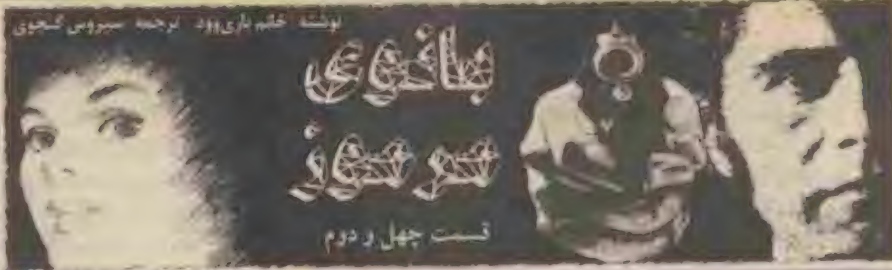 نوشته خانم باری‌وود ترجمه سیروس گنجوی
بانوی
مرموز
قسمت چهل و دوم